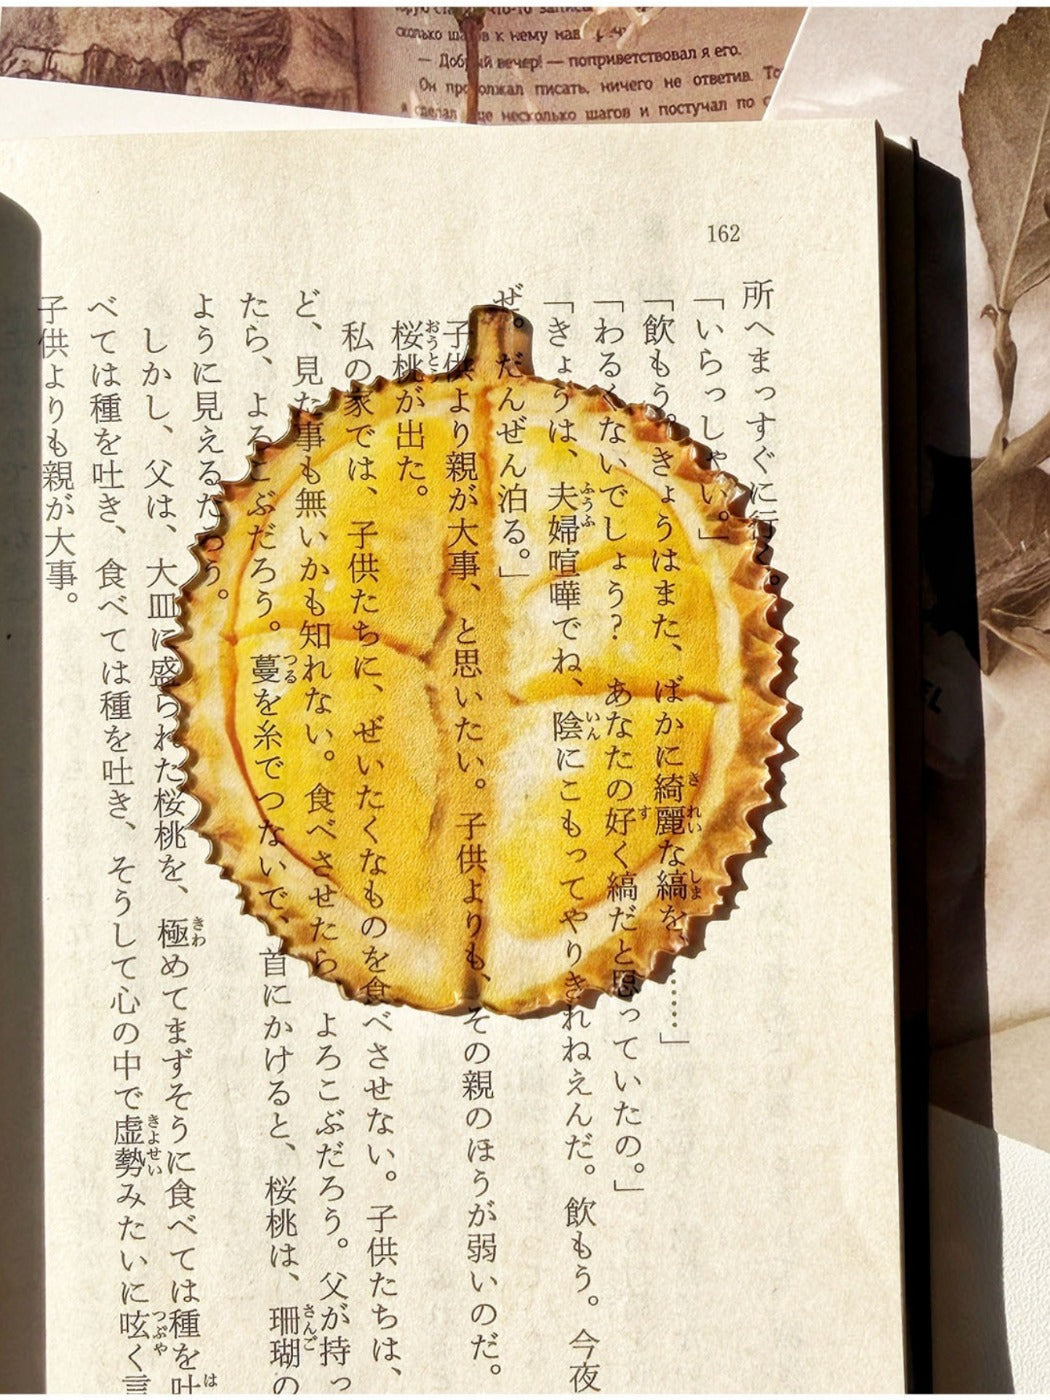 что-то
сколько шагов к нему
— Добрый вечер! — поприветствовал я его.
Он продолжал писать, ничего не ответив. То
сделал еще несколько шагов и постучал по
162
所へまっすぐに行く。
「いらっしゃい。」
「飲もう。きょうはまた、ばかに綺麗な縞を、……」
「わるくないでしょう? あなたの好く縞だと思っていたの。」
「きょうは、夫婦喧嘩でね、陰にこもってやりきれねえんだ。飲もう。今夜
ぜ。だんぜん泊る。」
子供より親が大事、と思いたい。子供よりも、その親のほうが弱いのだ。
桜桃が出た。
私の家では、子供たちに、ぜいたくなものを食べさせない。子供たちは、
ど、見た事も無いかも知れない。食べさせたら、よろこぶだろう。父が持っ
たら、よろこぶだろう。蔓を糸でつないで、首にかけると、桜桃は、珊瑚の
ように見えるだろう。
しかし、父は、大皿に盛られた桜桃を、極めてまずそうに食べては種を吐
べては種を吐き、食べては種を吐き、そうして心の中で虚勢みたいに呟く言
子供よりも親が大事。